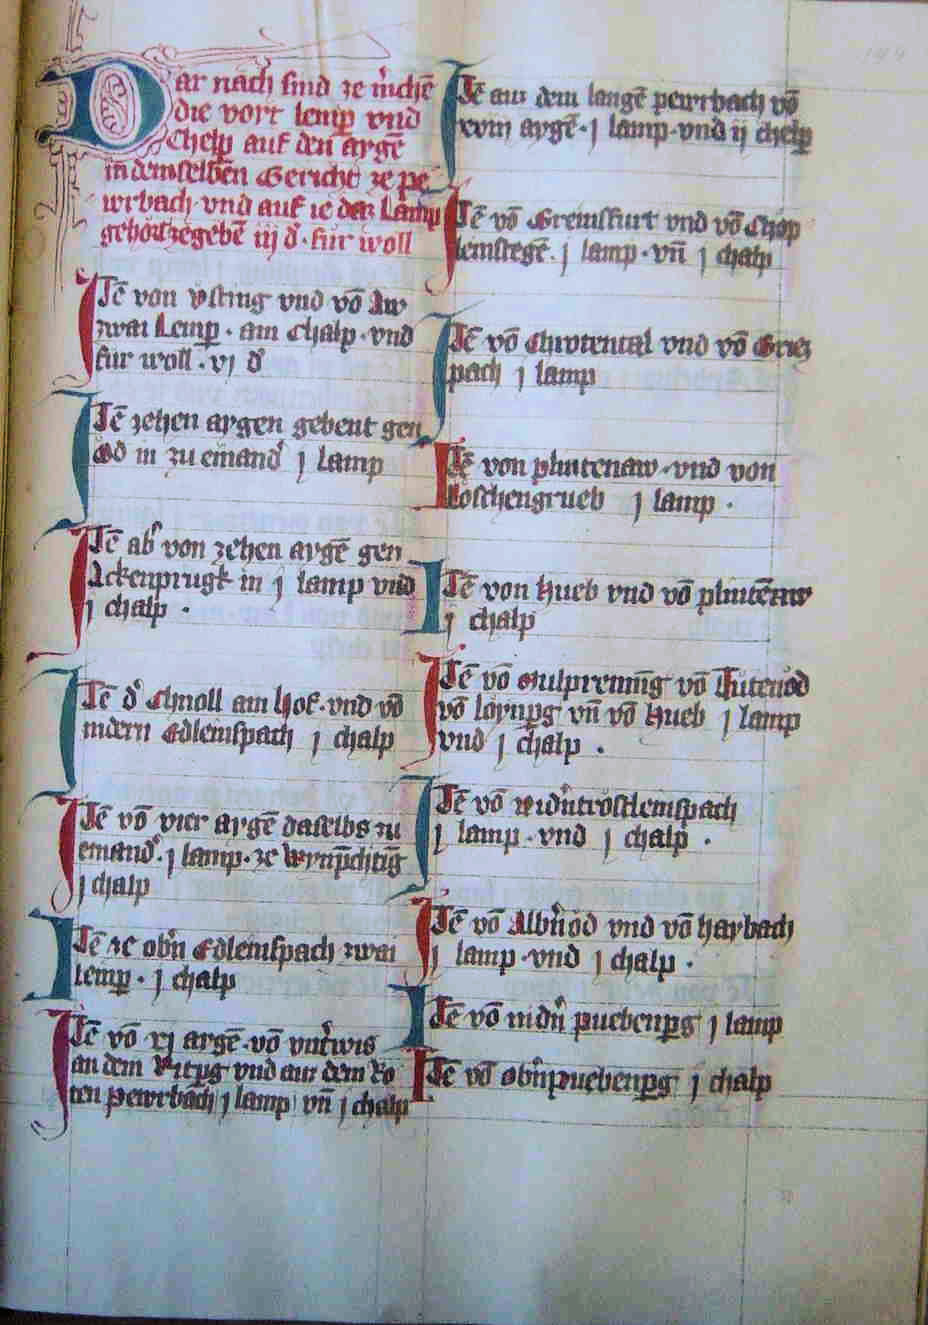 Dar nach sind ze m̄chē
die vort lemp̄ vnd
Chelp̄ auf den argē
in demselben Gericht ze pe
wrbach vnd auf ie daz Lamp
gehort ze gebē iij d̄ · fur woll
Itē von vsting vnd vō Aw
zwai Lemp̄ · ain Chalp · vnd
fur woll · vj d̄
Itē zehen argen gebent gen
öd in zu emand̄ j lamp
Itē ab̄ von zehen argē gen
Ackenprugk in j lamp vnd
j chalp ·
Itē d̄ Chnoll am hof · vnd vō
nidern Edleinspach j chalp
Itē vō vier argē daselbs zu
emand̄ · j lamp · ze
j chalp
Itē ze obn̄ Edleinspach zwai
Lemp̄ · j chalp
Itē vō vj argē · vō vnt̄wis
an dem vnd auz dem Ro
ten pewrbach j lamp vn̄ j chalp
Itē auz dem langē pewrbach vō
xviij argē · j lamp · vnd ij chelp̄
Itē vō Greinsfurt vnd vō Chöp
leinstegē · j lamp · vn̄ j chalp
Itē vō Chrotental vnd vō Griez
pach j lamp
Itē von phutenaw · vnd von
loschengrueb j lamp ·
Itē von Hueb vnd vō phutēaw
ij chalp
Itē vō vō
vō vn̄ vō Hueb j lamp
vnd j chalp ·
Itē vō nidn̄tröstleinspach
j lamp · vnd j chalp ·
Itē vō Albn̄öd vnd vō haybach
j lamp · vnd j chalp ·
Itē vō nidn̄ puebenp̄g j lamp
Itē vō obn̄puebenp̄g j chalp